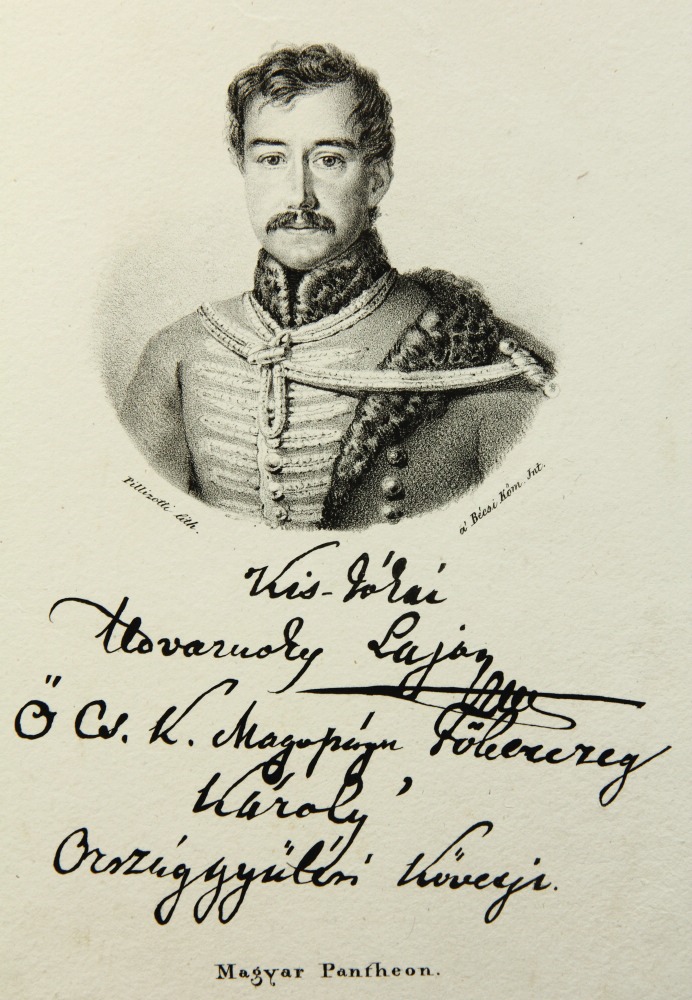 Pillizotti lith.
a' Bécsi Köm. Int.
Kis-Jókai
Udvarnoky Lajos
Ő Cs. K. Magossága Főherczeg
Károly'
Országgyűlési Követje.
Magyar Pantheon.